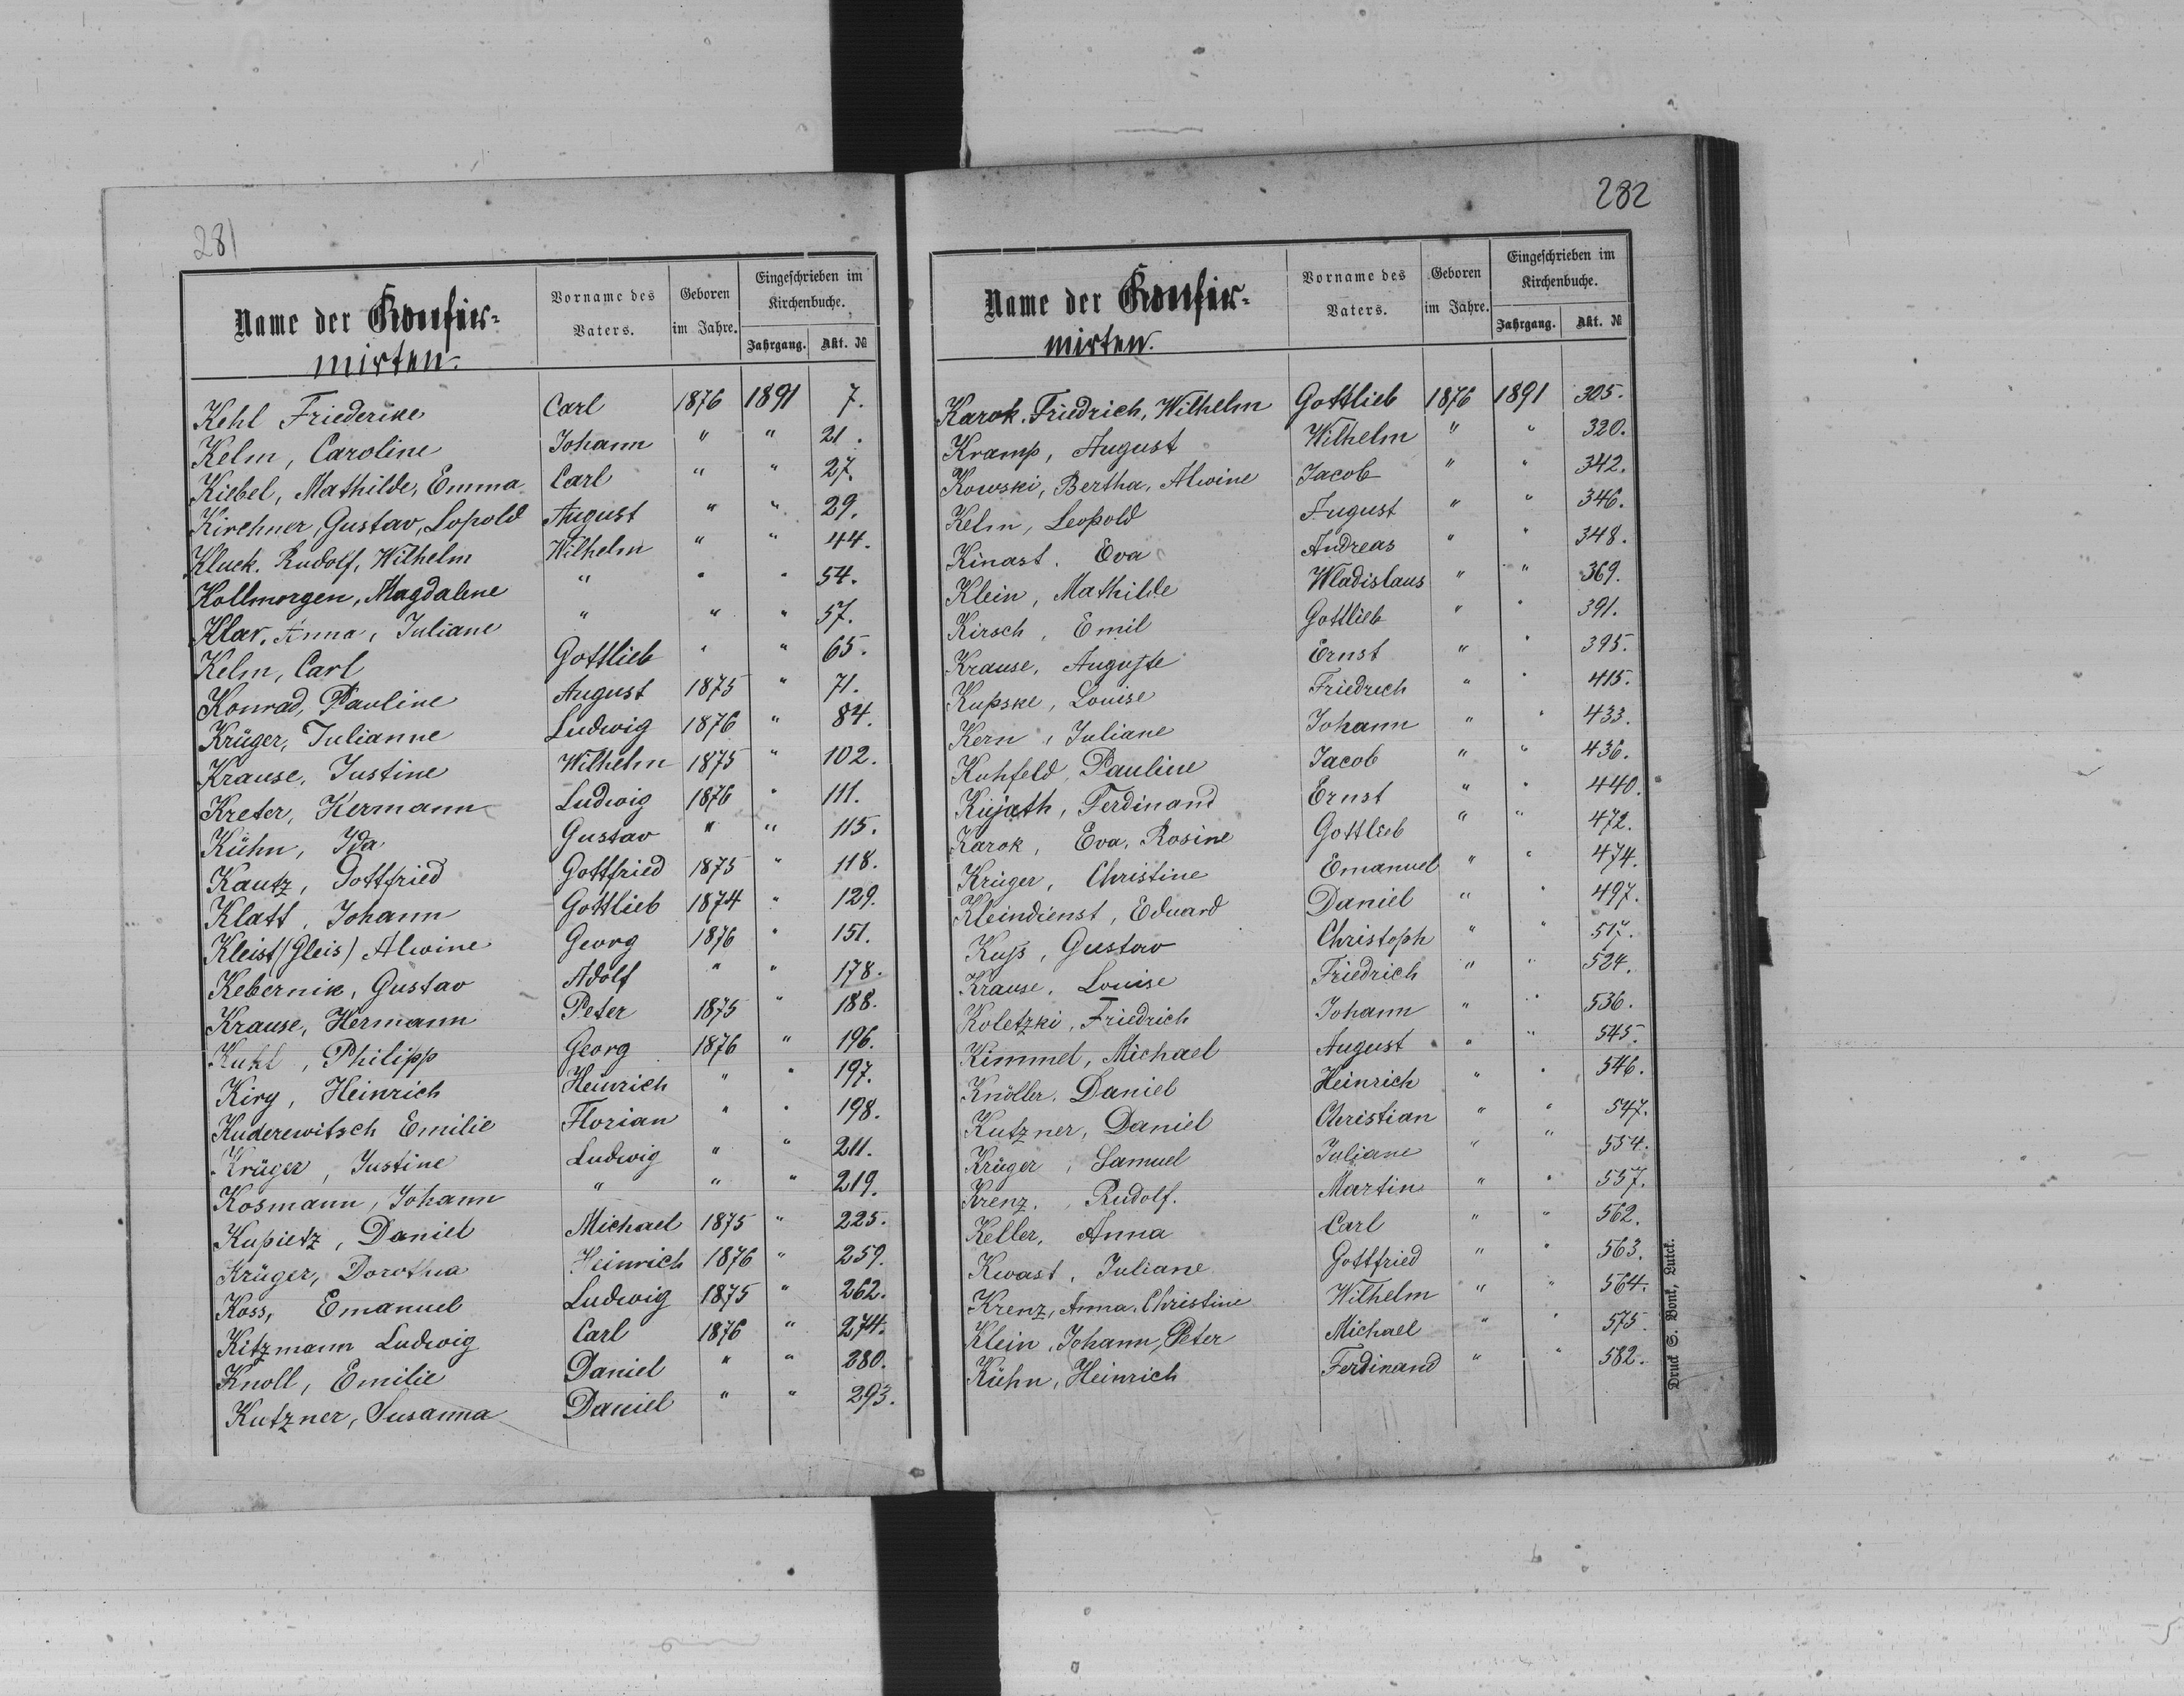 281
Name der Konfir=
mirten.
Vorname des
Vaters.
Geboren
im Jahre.
Eingeschrieben im
Kirchenbuche.
Jahrgang. Akt. №
Kehl Friederike Carl 1876 1891 7.
Kelm, Caroline Johann " " 21.
Kiebel, Mathilde, Emma Carl " " 27.
Kirchner, Gustav, Lopold August " " 29.
Kluck. Rudolf, Wilhelm Wilhelm " " 44.
Kollmorgen, Magdalene " " " 54.
Klar, Anna, Juliane " " " 57.
Kelm, Carl Gottlieb " " 65.
Konrad, Pauline August 1875 " 71.
Krüger, Julianne Ludwig 1876 " 84.
Krause, Justine Wilhelm 1875 " 102.
Kreter, Hermann Ludwig 1876 " 111.
Kühn, Ida Gustav " " 115.
Kautz, Gottfried Gottfried 1875 " 118.
Klatt, Johann Gottlieb 1874 " 129.
Kleist (Gleis) Alwine Georg 1876 " 151.
Kebernik, Gustav Adolf " " 178.
Krause, Hermann Peter 1875 " 188.
Kuhl, Philipp Georg 1876 " 196.
Kirg, Heinrich Heinrich " " 197.
Kuderewitsch Emilie Florian " " 198.
Krüger, Justine Ludwig " " 211.
Kosmann, Johann " " " 219.
Kupietz, Daniel Michael 1875 " 225.
Krüger, Dorothea Heinrich 1876 " 259.
Koss, Emanuel Ludwig 1875 " 262.
Kitzmann Ludwig Carl 1876 " 274.
Knoll, Emilie Daniel " " 280.
Kutzner, Susanna Daniel " " 293.
282
Name der Konfir=
mirten.
Vorname des
Vaters.
Geboren
im Jahre.
Eingeschrieben im
Kirchenbuche.
Jahrgang. Akt. №
Karok. Friedrich, Wilhelm Gottlieb 1876 1891 305.
Kramp, August Wilhelm " " 320.
Kowski, Bertha, Alwine Jacob " " 342.
Kelm, Leopold August " " 346.
Kinast. Eva Andreas " " 348.
Klein, Mathilde Wladislaus " " 369.
Kirsch, Emil Gottlieb " " 391.
Krause, Auguste Ernst " " 395.
Kupske, Louise Friedrich " " 415.
Kern, Juliane Johann " " 433.
Kuhfeld, Pauline Jacob " " 436.
Kujath, Ferdinand Ernst " " 440.
Karok, Eva, Rosine Gottlieb " " 472.
Krüger, Christine Emanuel " " 474.
Kleindienst, Eduard Daniel " " 497.
Kuß, Gustav Christoph " " 517.
Krause, Louise Friedrich " " 524.
Koletzki, Friedrich Johann " " 536.
Kimmel, Michael August " " 545.
Knöller. Daniel Heinrich " " 546.
Kutzner, Daniel Christian " " 547.
Krüger, Samuel Juliane " " 554.
Krenz, Rudolf. Martin " " 557.
Keller, Anna Carl " " 562.
Kwast, Juliane Gottfried " " 563.
Krenz, Anna, Christine Wilhelm " " 564.
Klein, Johann, Peter Michael " " 575.
Kühn, Heinrich Ferdinand " " 582.
Druck S. Bonk, Lutck.